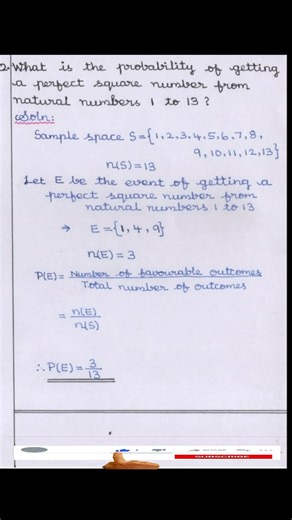 2. What is the probability of getting
a perfect square number from
natural numbers 1 to 13?
Soln:
Sample space S={1,2,3,4,5,6,7,8,
9,10,11,12,13}
n(S)=13
Let E be the event of getting a
perfect square number from
natural numbers 1 to 13
→ E={1,4,9}
n(E)=3
P(E)= Number of favourable outcomes
Total number of outcomes
= n(E)
n(S)
∴P(E)= 3
13
SUBSCRIBE